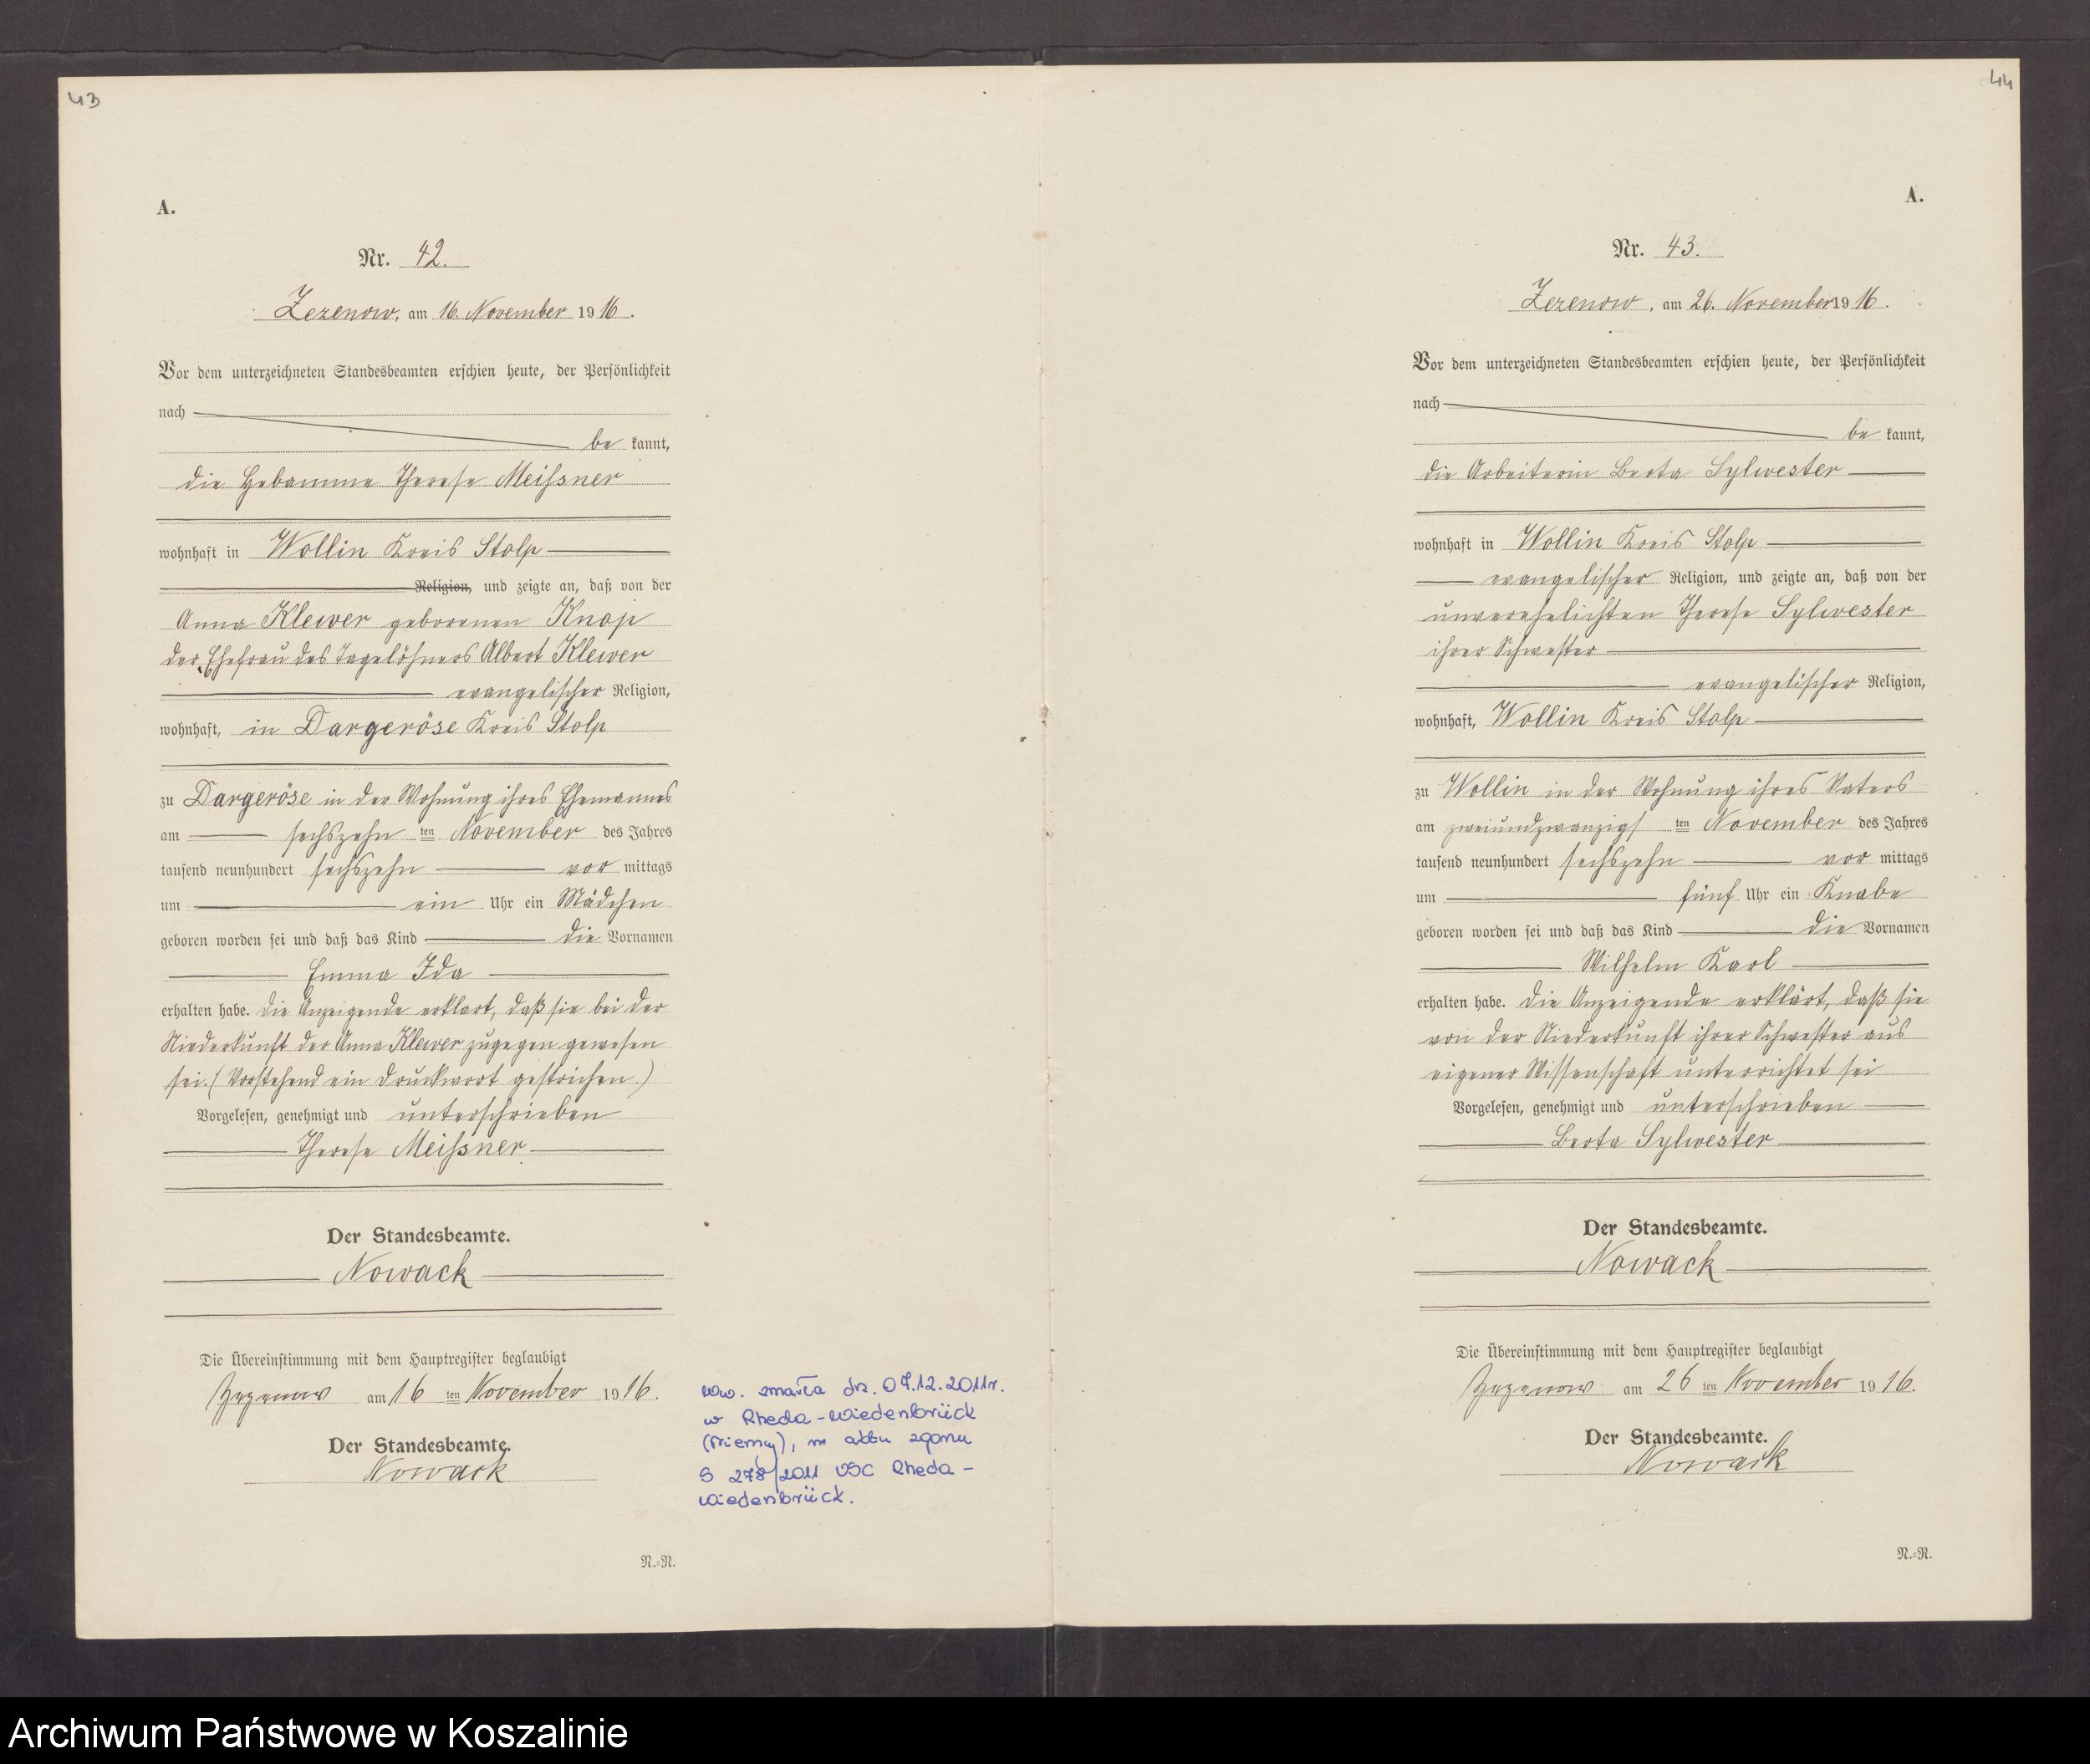 43
A.
Nr. 42.
Zezenow, am 16. November 1916.
Vor dem unterzeichneten Standesbeamten erschien heute, der Persönlichkeit
nach
be kannt,
die Hebamme Therese Meißner
wohnhaft in Wollin Kreis Stolp
Religion, und zeigte an, daß von der
Anna Klewer geborenen Knop
der Ehefrau des Tagelöhners Albert Klewer
evangelischer Religion,
wohnhaft, in Dargeröse Kreis Stolp
zu Dargeröse in der Wohnung ihres Ehemannes
am sechszehn ten November des Jahres
tausend neunhundert sechszehn vor mittags
um ein Uhr ein Mädchen
geboren worden sei und daß das Kind die Vornamen
Emma Ida
erhalten habe. Die Anzeigende erklart, daß sie bei der
Niederkunft der Anna Klewer zugegen gewesen
sei. (Vorstehend ein Druckwort gestrichen.)
Vorgelesen, genehmigt und unterschrieben
Therese Meißner
Der Standesbeamte.
Nowack
Die Übereinstimmung mit dem Hauptregister beglaubigt
Zezenow am 16 ten November 1916.
Der Standesbeamte.
Nowack
N.-R.
ww. zmarła dn. 07.12.2011r.
w Rheda-Wiedenbrück
(Niemcy), nr aktu zgonu
S 278/2011 USC Rheda-
Wiedenbrück.
44
A.
Nr. 43.
Zezenow, am 26. November 1916.
Vor dem unterzeichneten Standesbeamten erschien heute, der Persönlichkeit
nach
be kannt,
die Arbeiterin Berta Sylwester
wohnhaft in Wollin Kreis Stolp
evangelischer Religion, und zeigte an, daß von der
unverehelichten Therese Sylwester
ihrer Schwester
evangelischer Religion,
wohnhaft, Wollin Kreis Stolp
zu Wollin in der Wohnung ihres Vaters
am zweiundzwanzigs ten November des Jahres
tausend neunhundert sechszehn vor mittags
um fünf Uhr ein Knabe
geboren worden sei und daß das Kind die Vornamen
Wilhelm Karl
erhalten habe. Die Anzeigende erklärt, daß sie
von der Niederkunft ihrer Schwester aus
eigener Wissenschaft unterrichtet sei
Vorgelesen, genehmigt und unterschrieben
Berta Sylwester
Der Standesbeamte.
Nowack
Die Übereinstimmung mit dem Hauptregister beglaubigt
Zezenow am 26 ten November 1916.
Der Standesbeamte.
Nowack
N.-R.
Archiwum Państwowe w Koszalinie